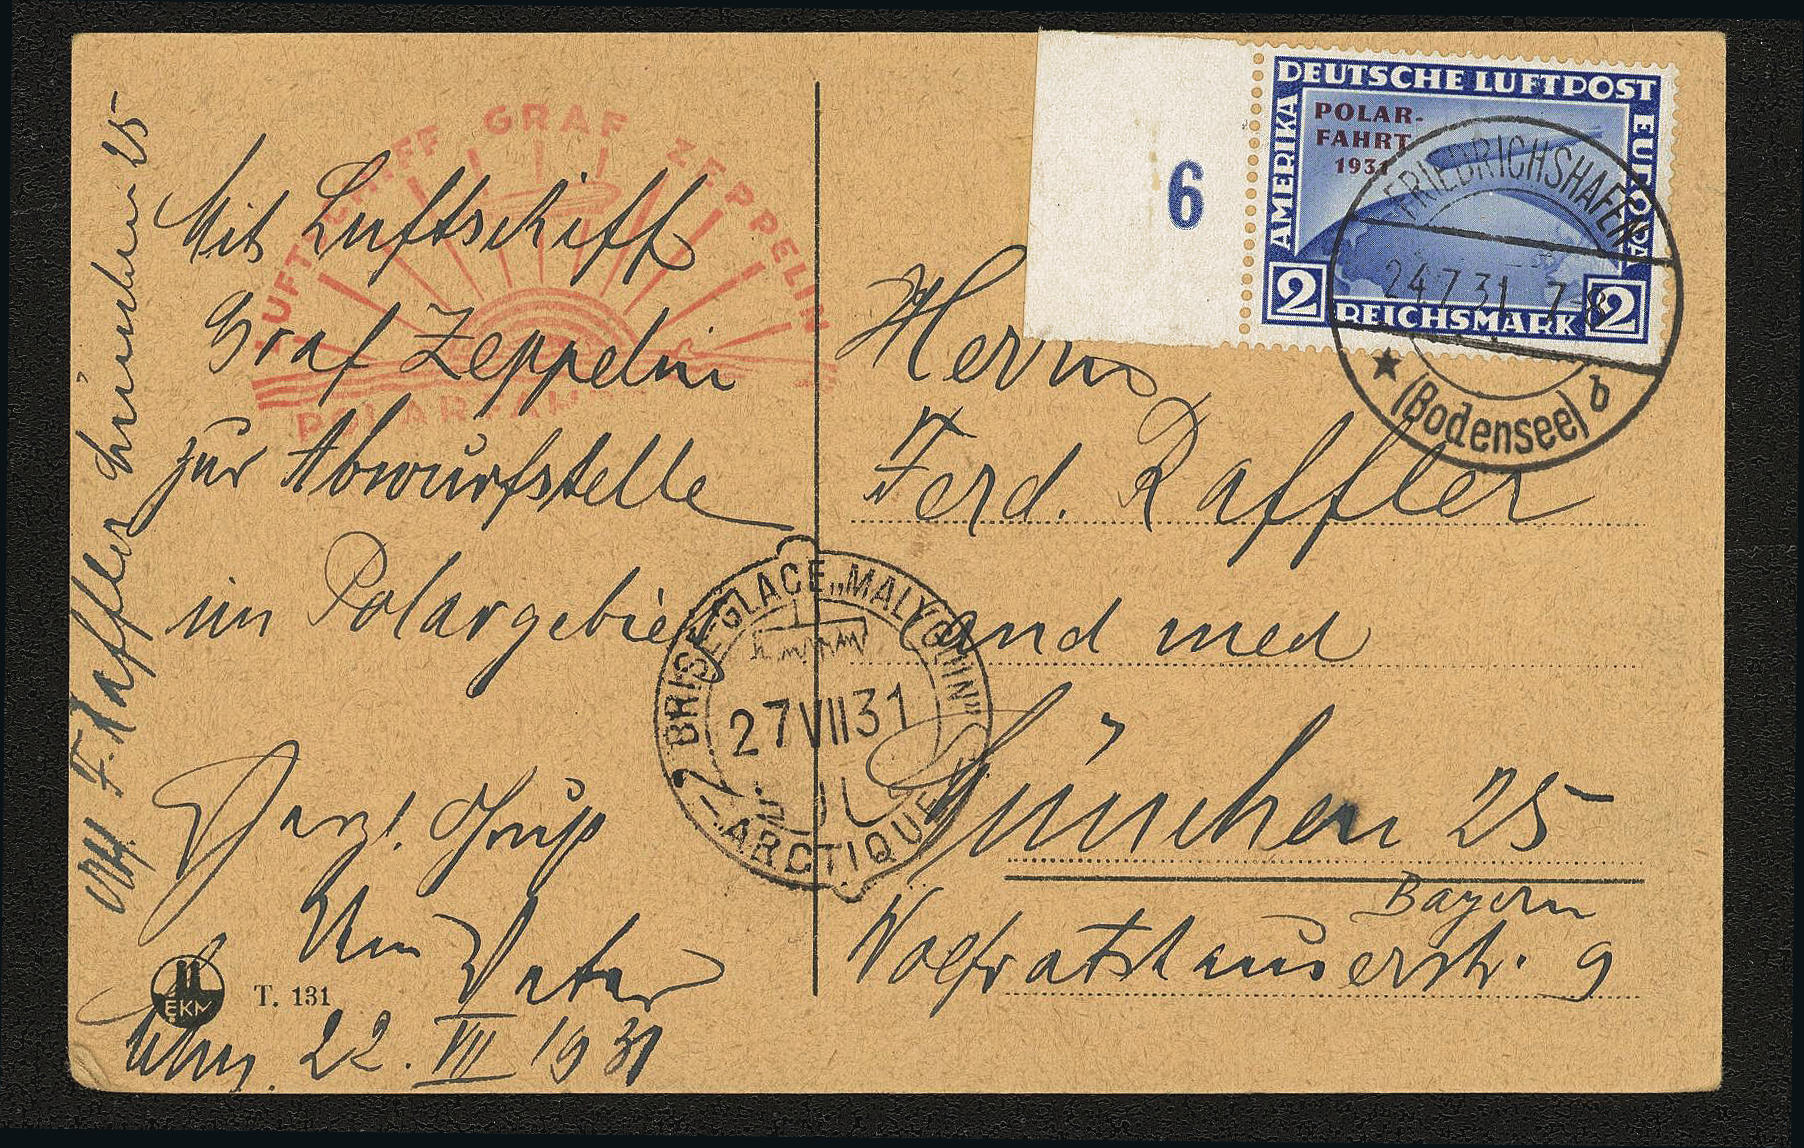 LUFTSCHIFF GRAF ZEPPELIN
POLARFAHRT
Mit Luftschiff
Graf Zeppelin
zur Abwurfstelle
im Polargebiet
Herzl. Gruß
Vater
22. VII 1931
F. Raffler München 25
EKM
T. 131
6
DEUTSCHE LUFTPOST
AMERIKA
EUROPA
POLAR-
FAHRT
1931
2 REICHSMARK 2
FRIEDRICHSHAFEN
24.7.31 7-8
(Bodensee) b
BRISE-GLACE „MALYGUIN"
27 VII 31
ARCTIQUE
Herrn
Ferd. Raffler
cand med
München 25
Bayern
Wolfratshauserstr. 9